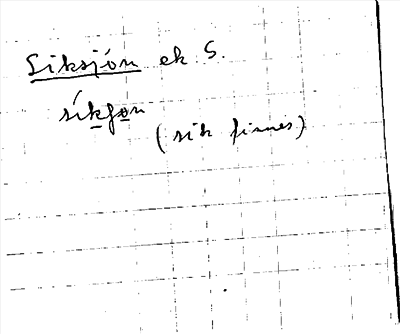 Siksjön ek S.
síkʃon
(sik finnes)